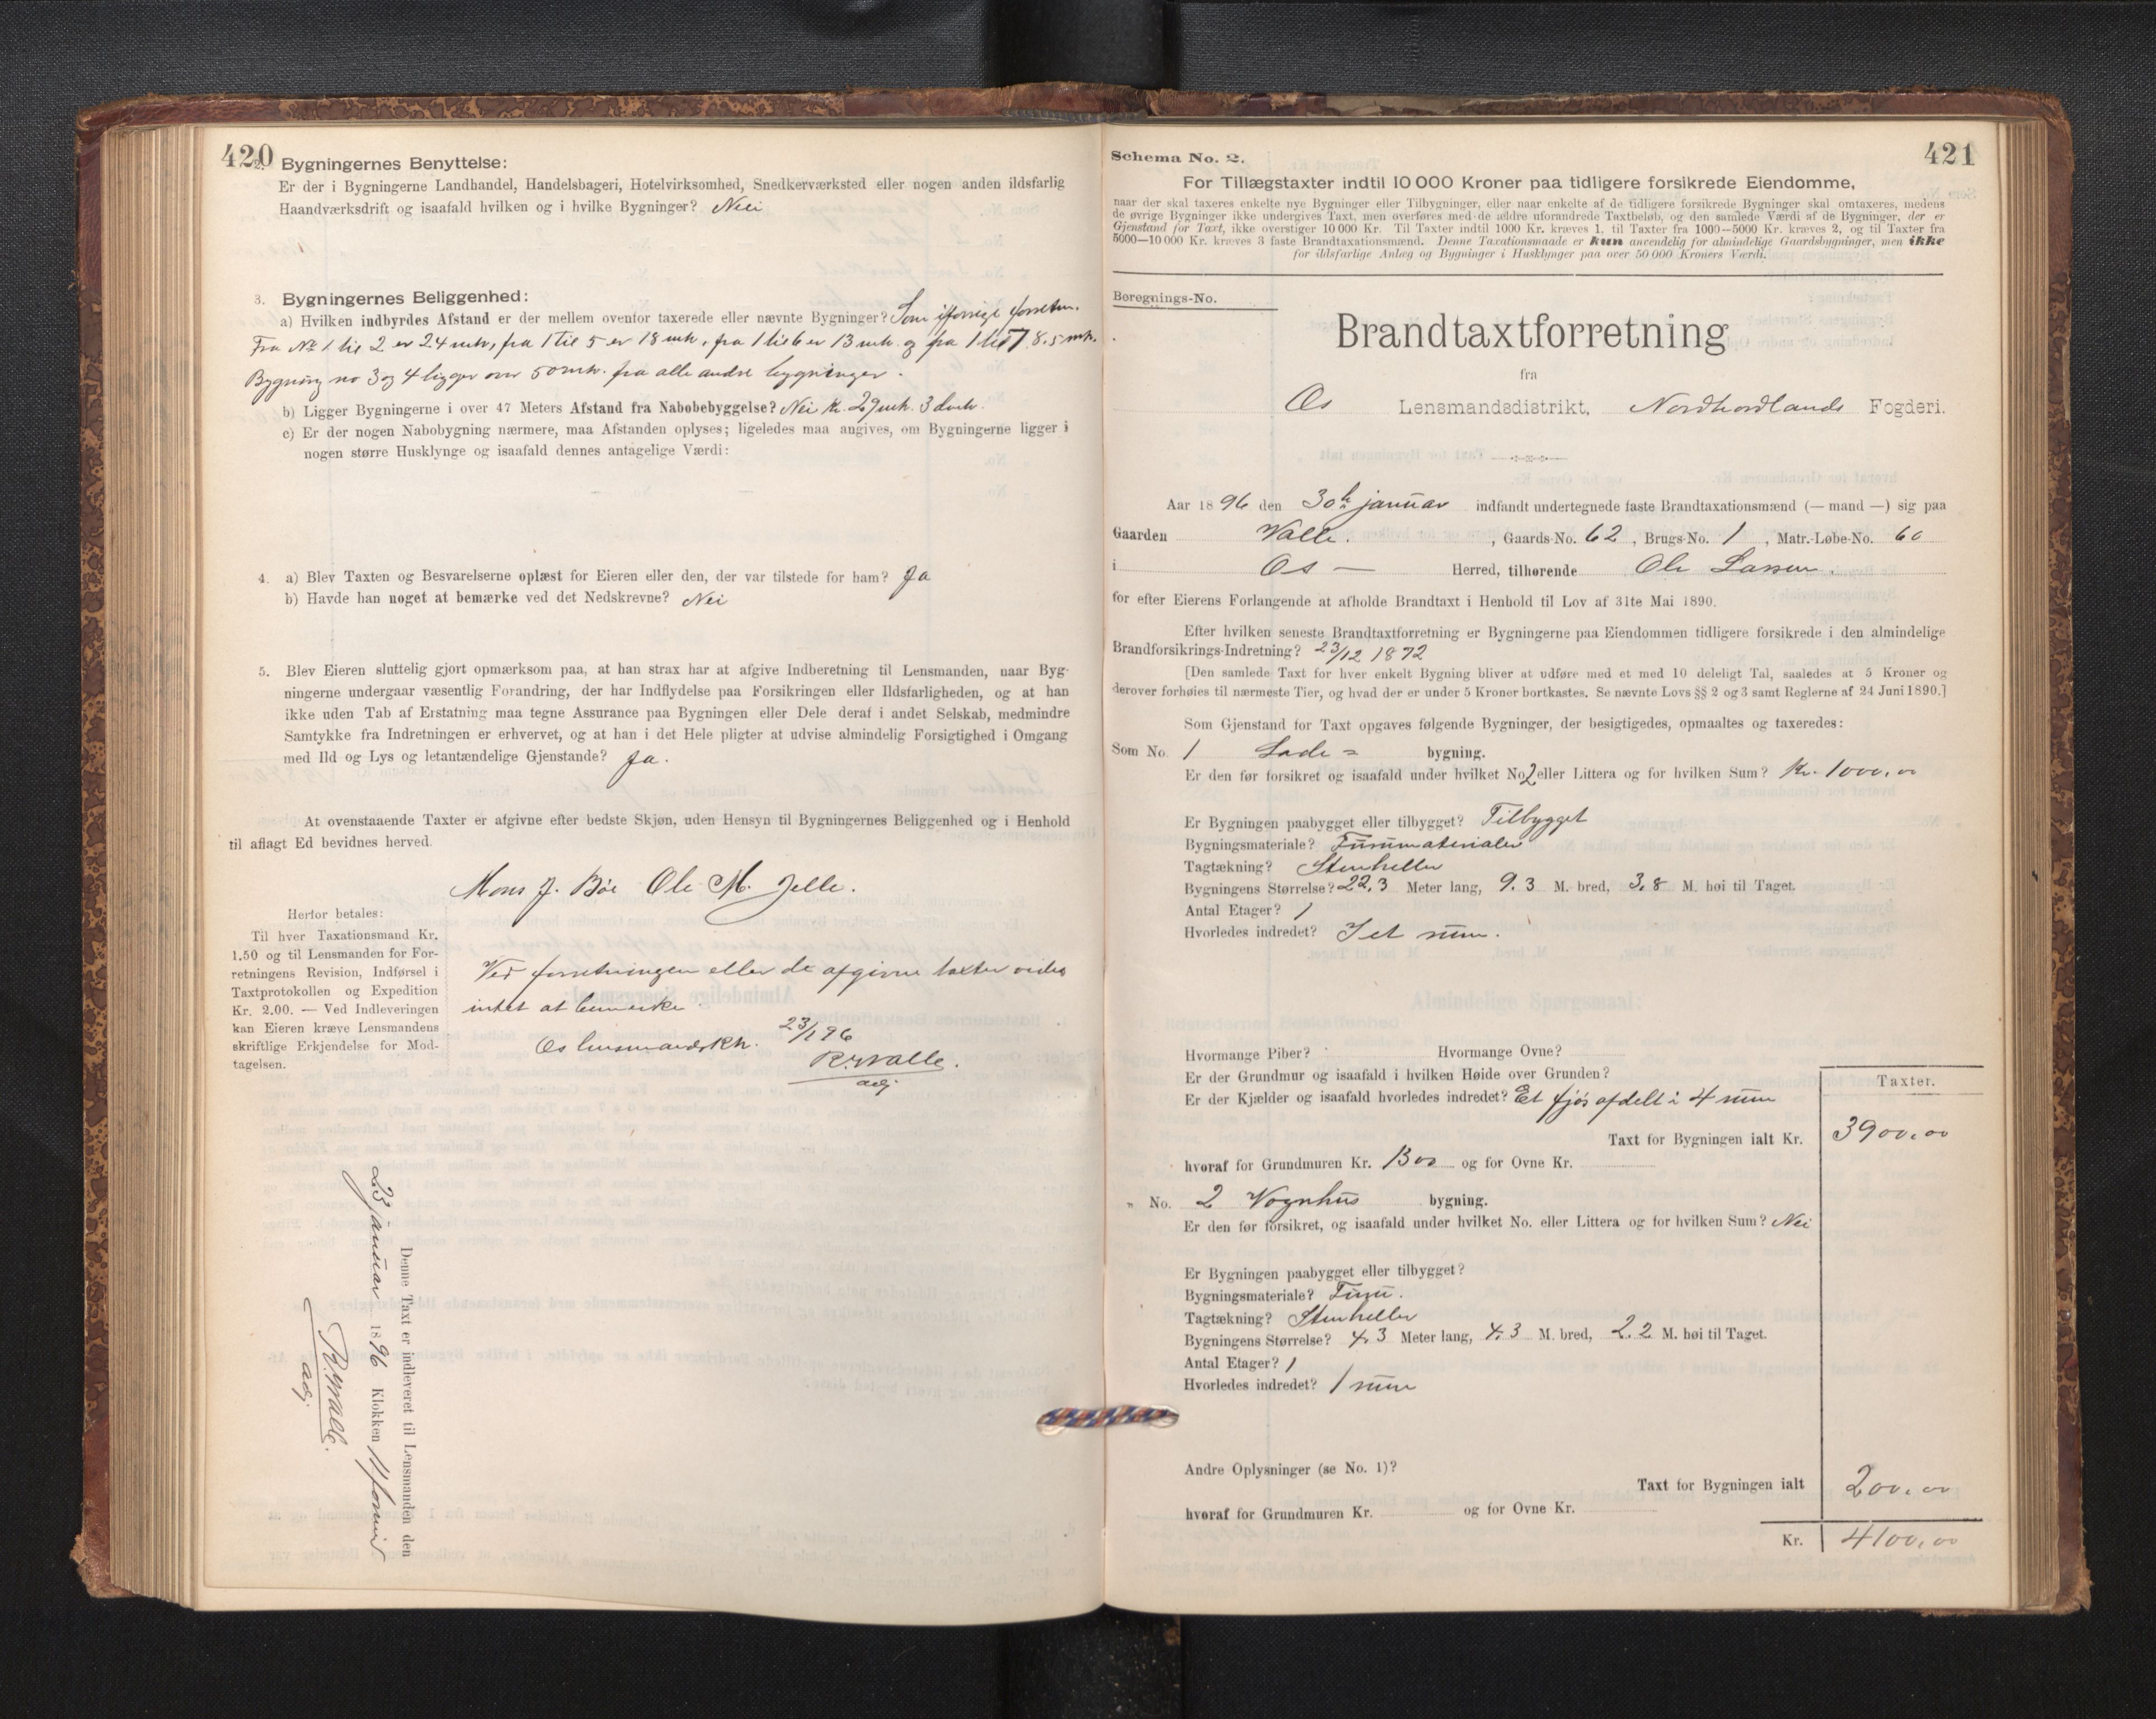 420
2. Bygningernes Benyttelse:
Er der i Bygningerne Landhandel, Handelsbageri, Hotelvirksomhed, Snedkerværksted eller nogen anden ildsfarlig
Haandværksdrift og isaafald hvilken og i hvilke Bygninger? Nei
3. Bygningernes Beliggenhed:
a) Hvilken indbyrdes Afstand er der mellem ovenfor taxerede eller nævnte Bygninger? Som i forrige forretn.
Fra No 1 til 2 er 24 mtr, fra 1 til 5 er 18 mtr, fra 1 til 6 er 13 mtr. og fra 1 til 7 8.5 mtr.
Bygning no 3 og 4 ligger over 50 mtr. fra alle andre bygninger.
b) Ligger Bygningerne i over 47 Meters Afstand fra Nabobebyggelse? Nei 29 mtr. 3
c) Er der nogen Nabobygning nærmere, maa Afstanden oplyses; ligeledes maa angives, om Bygningerne ligger i
nogen større Husklynge og isaafald dennes antagelige Værdi:
4. a) Blev Taxten og Besvarelserne oplæst for Eieren eller den, der var tilstede for ham? Ja
b) Havde han noget at bemærke ved det Nedskrevne? Nei
5. Blev Eieren sluttelig gjort opmærksom paa, at han strax har at afgive Indberetning til Lensmanden, naar Byg-
ningerne undergaar væsentlig Forandring, der har Indflydelse paa Forsikringen eller Ildsfarligheden, og at han
ikke uden Tab af Erstatning maa tegne Assurance paa Bygningen eller Dele deraf i andet Selskab, medmindre
Samtykke fra Indretningen er erhvervet, og at han i det Hele pligter at udvise almindelig Forsigtighed i Omgang
med Ild og Lys og letantændelige Gjenstande? Ja.
At ovenstaaende Taxter er afgivne efter bedste Skjøn, uden Hensyn til Bygningernes Beliggenhed og i Henhold
til aflagt Ed bevidnes herved.
Mons J. Bøe Ole M. Jelle.
Herfor betales:
Til hver Taxationsmand Kr.
1.50 og til Lensmanden for For-
retningens Revision, Indførsel i
Taxtprotokollen og Expedition
Kr. 2.00. — Ved Indleveringen
kan Eieren kræve Lensmandens
skriftlige Erkjendelse for Mod-
tagelsen.
Ved forretningen eller de afgivne taxter vides
intet at bemerke
Os lensmandsktr. 23/1 96
R. Walle.
adj.
Denne Taxt er indleveret til Lensmanden den
23 januar 1896 Klokken 11 formid
R. Walle.
adj
421
Schema No. 2.
For Tillægstaxter indtil 10 000 Kroner paa tidligere forsikrede Eiendomme,
naar der skal taxeres enkelte nye Bygninger eller Tilbygninger, eller naar enkelte af de tidligere forsikrede Bygninger skal omtaxeres, medens
de øvrige Bygninger ikke undergives Taxt, men overføres med de ældre uforandrede Taxtbeløb, og den samlede Værdi af de Bygninger, der er
Gjenstand for Taxt, ikke overstiger 10 000 Kr. Til Taxter indtil 1000 Kr. kræves 1, til Taxter fra 1000—5000 Kr. kræves 2, og til Taxter fra
5000—10 000 Kr. kræves 3 faste Brandtaxationsmænd. Denne Taxationsmaade er kun anvendelig for almindelige Gaardsbygninger, men ikke
for ildsfarlige Anlæg og Bygninger i Husklynger paa over 50 000 Kroners Værdi.
Beregnings-No.
Brandtaxtforretning
fra
Os Lensmandsdistrikt, Nordhordlands Fogderi.
Aar 1896 den 30te januar indfandt undertegnede faste Brandtaxationsmænd (— mand —) sig paa
Gaarden Valle. , Gaards-No. 62 , Brugs-No. 1 , Matr.-Løbe-No. 60
i Os — Herred, tilhørende Ole Larsen.
for efter Eierens Forlangende at afholde Brandtaxt i Henhold til Lov af 31te Mai 1890.
Efter hvilken seneste Brandtaxtforretning er Bygningerne paa Eiendommen tidligere forsikrede i den almindelige
Brandforsikrings-Indretning? 23/12 1872
[Den samlede Taxt for hver enkelt Bygning bliver at udføre med et med 10 deleligt Tal, saaledes at 5 Kroner og
derover forhøies til nærmeste Tier, og hvad der er under 5 Kroner bortkastes. Se nævnte Lovs §§ 2 og 3 samt Reglerne af 24 Juni 1890.]
Som Gjenstand for Taxt opgaves følgende Bygninger, der besigtigedes, opmaaltes og taxeredes:
Som No. 1 Lade= bygning.
Er den før forsikret og isaafald under hvilket No 2 eller Littera og for hvilken Sum? Kr. 1000,00
Er Bygningen paabygget eller tilbygget? Tilbygget
Bygningsmateriale? Furumaterialer
Tagtækning? Stenheller
Bygningens Størrelse? 22,3 Meter lang, 9.3 M. bred, 3,8 M. høi til Taget.
Antal Etager? 1
Hvorledes indredet? I et rum.
Hvormange Piber? Hvormange Ovne?
Er der Grundmur og isaafald i hvilken Høide over Grunden?
Er der Kjælder og isaafald hvorledes indredet? Et fjøs afdelt i 4 rum
Taxter.
Taxt for Bygningen ialt Kr. 3900,00
hvoraf for Grundmuren Kr. 1300 og for Ovne Kr.
" No. 2 Vognhus bygning.
Er den før forsikret, og isaafald under hvilket No. eller Littera og for hvilken Sum? Nei
Er Bygningen paabygget eller tilbygget?
Bygningsmateriale? Furu.
Tagtækning? Stenheller
Bygningens Størrelse? 4.3 Meter lang, 4.3 M. bred, 2.2 M. høi til Taget.
Antal Etager? 1
Hvorledes indredet? 1 rum
Andre Oplysninger (se No. 1)?
Taxt for Bygningen ialt 200,00
hvoraf for Grundmuren Kr. og for Ovne Kr.
Kr. 4100,00